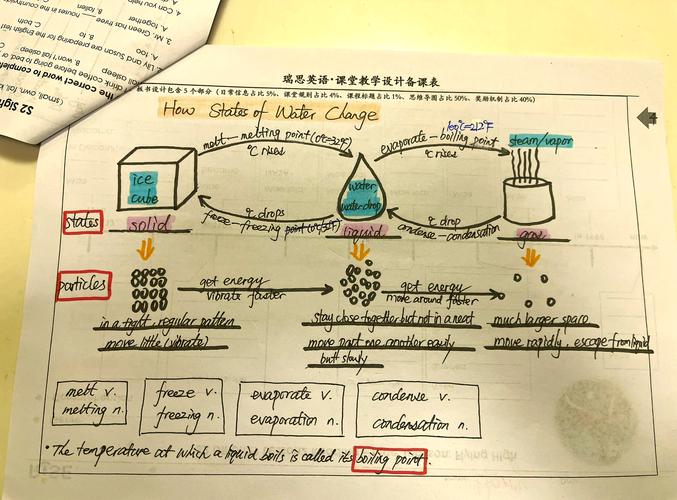 瑞思英语·课堂教学设计备课表
板书设计包含5个部分（日常信息占比5%、课堂规则占比4%、课程标题占比1%、思维导图占比50%、奖励机制占比40%）
How States of Water Change
100°C=212°F
melt—melting point (0°C=32°F)
evaporate—boiling point
steam/vapor
°C rises
°C rises
ice
cube
water,
water drop
°C drops
freeze—freezing point (0°C=32°F)
°C drop
condense—condensation
states
solid
liquid
gas
particles
get energy
vibrate faster
get energy
move around faster
in a tight, regular pattern
move little (vibrate)
stay close together but not in a neat
move past one another easily
but slowly
much larger space
move rapidly, escape from liquid
melt v.
melting n.
freeze v.
freezing n.
evaporate v.
evaporation n.
condense v.
condensation n.
• The temperature at which a liquid boils is called its boiling point.
S2 Sigh
(small, own, fo
the correct word to comple
drink coffee before going to bed, or
fall asleep
B. won't fall asleep
Lily and Susan are preparing for the English tes
A. too
B. to
3. Mr. Green has three houses in the countrysid
A. together
B. fallen
C. both
4. Can you help